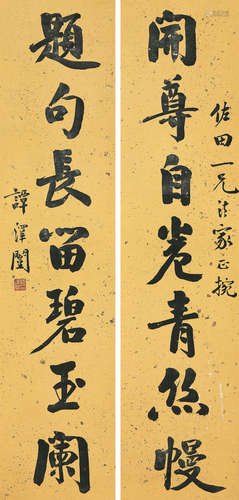 開尊自卷青絲幔
佐田一兄法家正捥
題句長留碧玉闌
譚澤闓